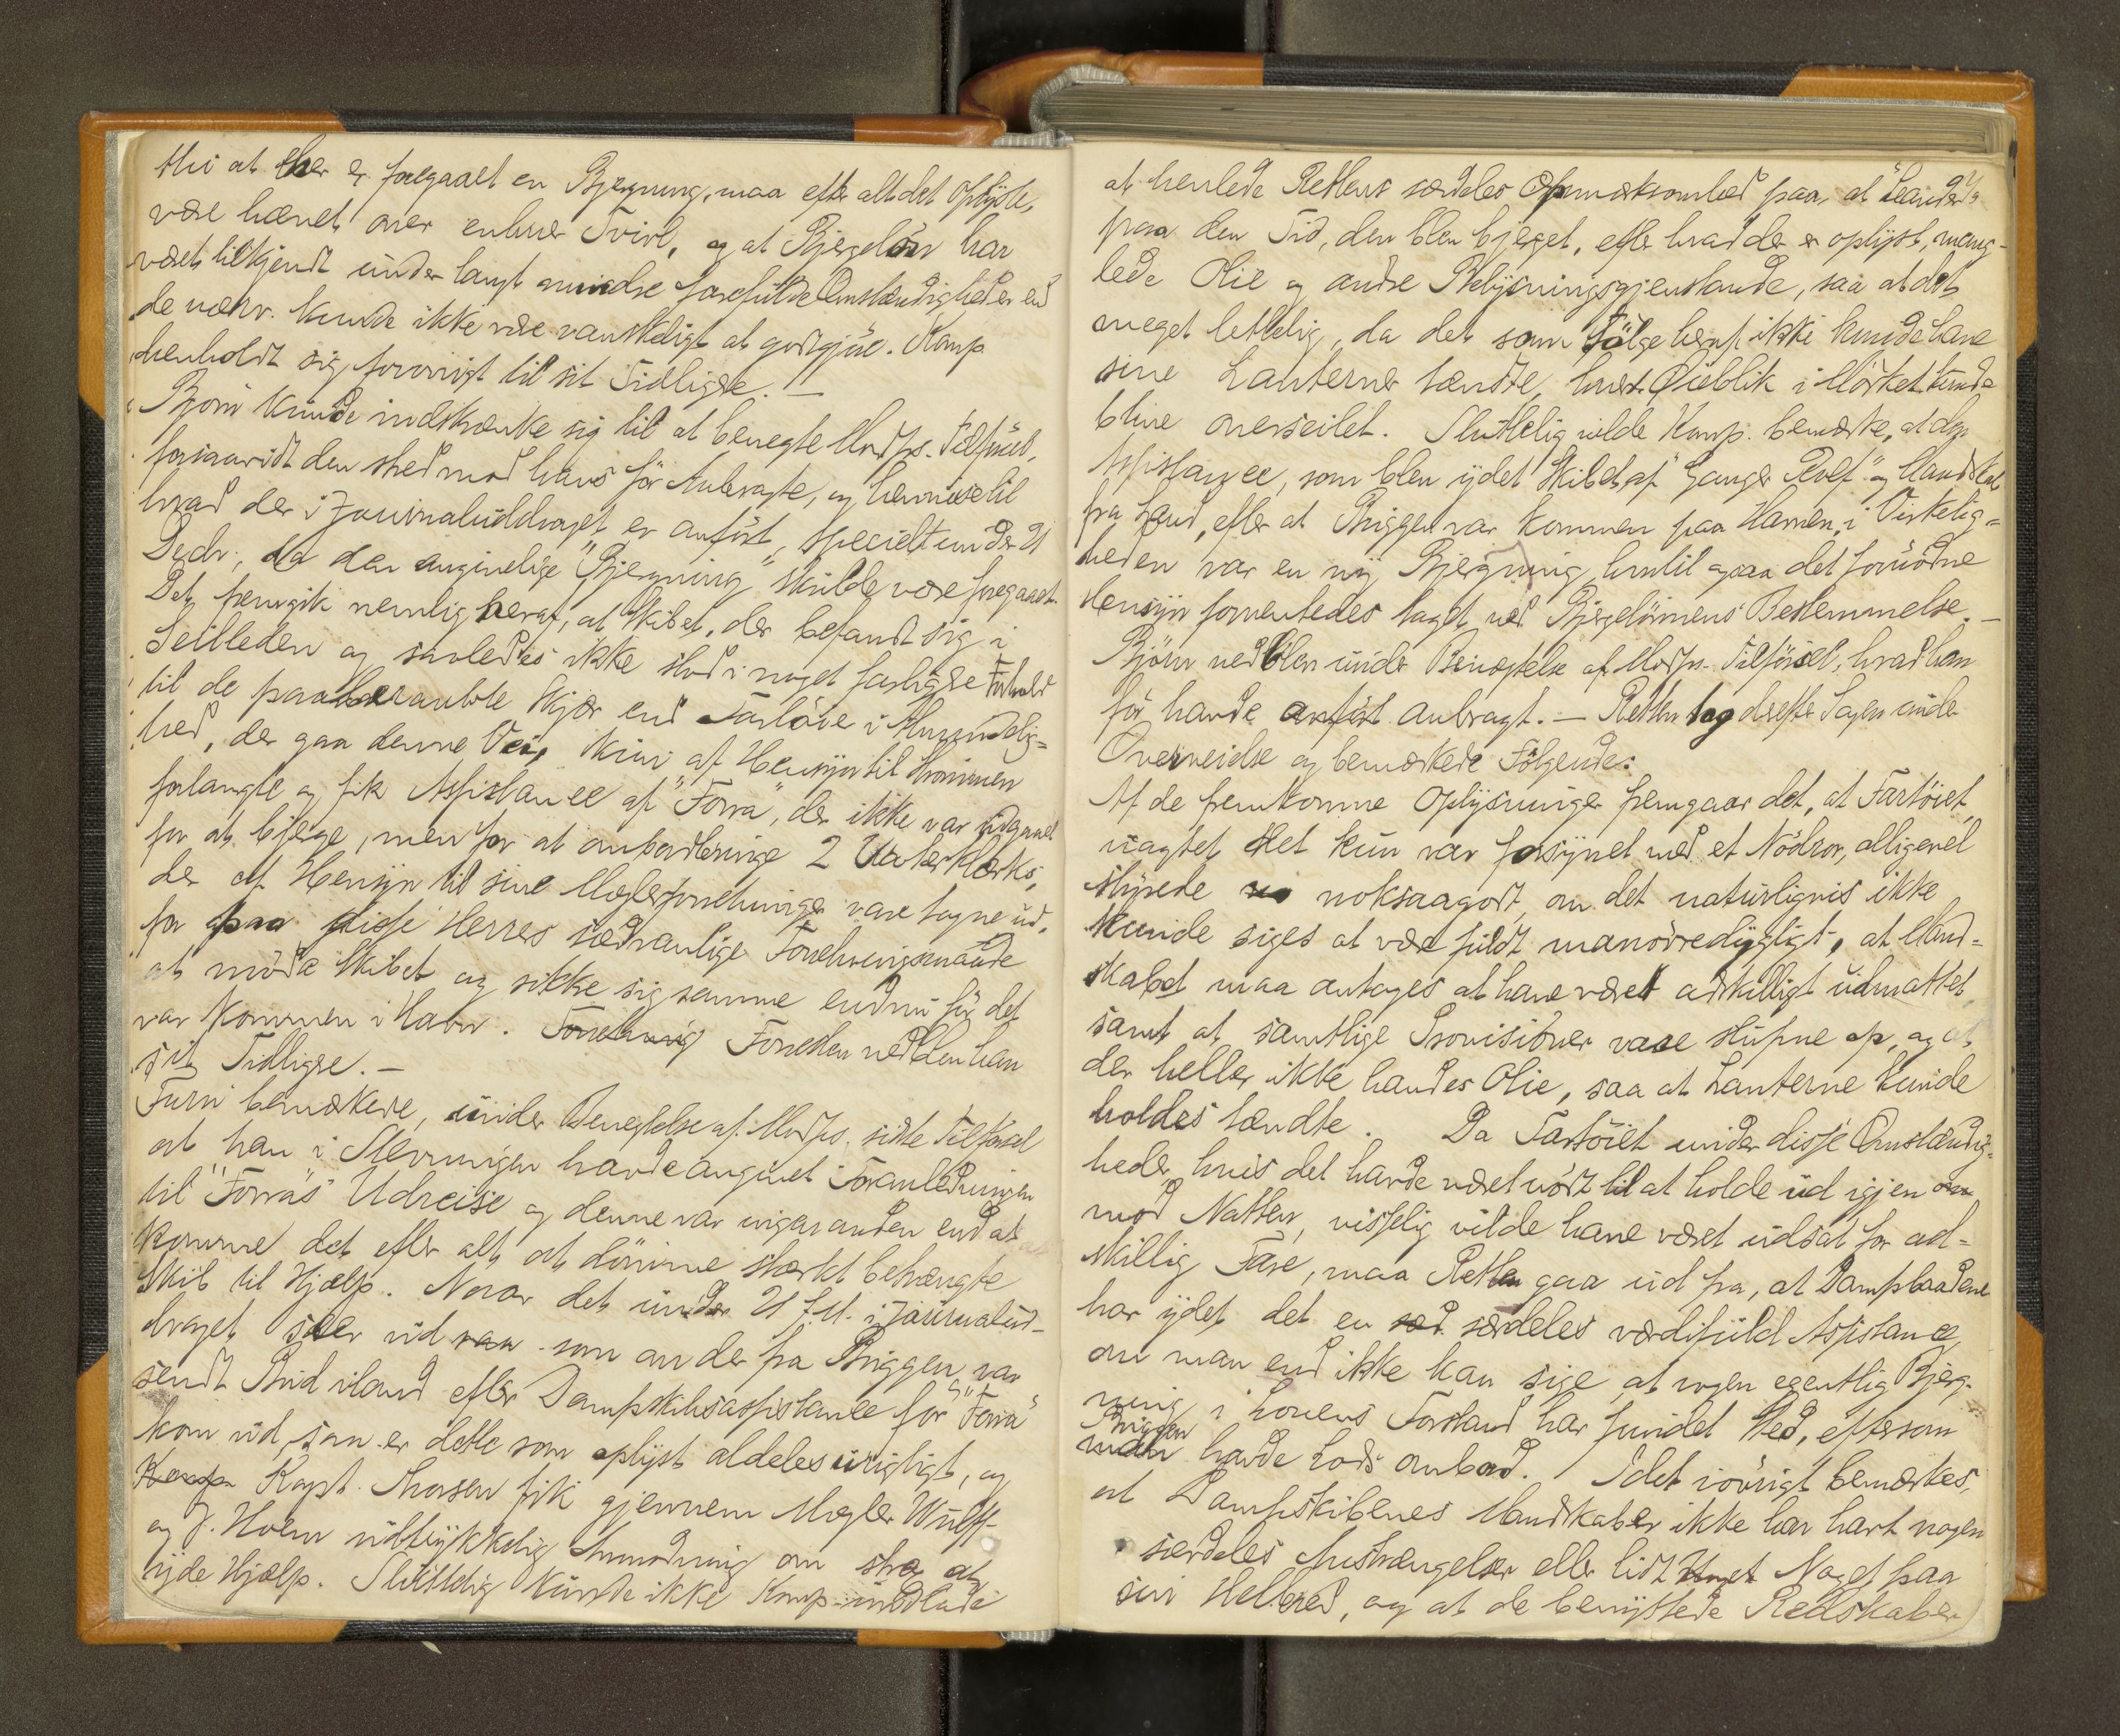 thi at her er foregaaet en Bjergning, maa efter alt det oplyste,
være hævet over enhver Tvivl, og at Bjergeløn har
været tilkjendt under langt mindre farefulde Omstændigheder end
de nærv. kunde ikke være vanskeligt at godtgjøre. Komp.
henholdt sig forøvrigt til sit Tidligere. —
Bjørn kunde indskrænke sig til at benegte Modps. Tilførsel,
forsaavidt den stred mod hans før Anbragte, og henvise til
hvad der i Journaluddraget er anført, specielt under 21
Decbr., da den angivelige "Bjergning" skulde være foregaaet.
Det fremgik nemlig heraf, at Skibet, der befandt sig i
Seilleden og saaledes ikke stod i noget farligere Forhold
til de paaberaabte Skjær end Fartøier i Almindelig=
hed, der gaa denne Vei, kun af Hensyn til Strømmen
forlangte og fik Assistance af "Forra", der ikke var udgaaet
for at bjerge, men for at ombordbringe 2 Vaterklerks,
der af Hensyn til sine Mæglerforretninger vare tagne ud,
for paa disse Herrers sædvanlige Forretningsmaade
at møde Skibet og sikkre sig samme endnu før det
var kommen i Havn. Forretning Forresten vedblev han
sit Tidligere. —
Furu bemærkede, under Benegtelse af Modps. sidste Tilførsel
at han i Stevningen havde angivet Foranledningen
til "Forra's" Udreise og denne var ingen anden end at
komme det efter alt at dømme stærkt betrængte
Skib til Hjælp. Naar det under 21 f. M. i Journalud-
draget seer ud som om der fra Briggen var
sendt Bud iland efter Dampskibsassistance før "Forra"
kom ud, saa er dette som oplyst aldeles urigtigt, og
Komp. Kapt. Thorsen fik gjennem Mægler Wulff
og J. Holm udtrykkelig Anmodning om strax at
yde Hjælp. Sluttelig kunde ikke Komp. undlade
at henlede Rettens særdeles Opmærksomhed paa, at "Leander"
paa den Tid, den blev bjerget, efter hvad der er oplyst, mang-
lede Olie og andre Belysningsgjenstande, saa at det
meget lettelig, da det som Følge heraf ikke kunde have
sine Lanterner tændte, hvert Øieblik i Mørket kunde
blive overseilet. Sluttelig vilde Komp. bemærke, at den
Assistance, som blev ydet Skibet af "Ganger Rolf" og Mandskab
fra Land, efter at Briggen var kommen paa Havnen, i Virkelig=
heden var en ny Bjergning, hvortil ogsaa det fornødne
Hensyn forventedes taget ved Bjergelønnens Bestemmelse. —
Bjørn vedblev under Benægtelse af Modps. Tilførsel, hvad han
før havde anført anbragt. — Retten tog derefter Sagen under
Overveielse og bemærkede Følgende:
Af de fremkomne Oplysninger fremgaar det, at Fartøiet,
uagtet det kun var forsynet med et Nødror, alligevel
styrede noksaagodt, om det naturligvis ikke
kunde siges at være fuldt manøvredygtigt, at Mand=
skabet maa antages at have været adskilligt udmattet,
samt at samtlige Provisioner vare slupne op, og at
der heller ikke havdes Olie, saa at Lanterne kunde
holdes tændte. Da Fartøiet under disse Omstændig=
heder, hvis det havde været nødt til at holde ud igjen
mod Natten, visselig vilde have været udsat for ad=
skillig Fare, maa Retten gaa ud fra, at Dampbaadene
har ydet det en sæd. særdeles værdifuld Assistance,
om man end ikke kan sige, at nogen egentlig Bjerg-
ning i Lovens Forstand har fundet Sted, eftersom
Briggen
man havde Lods ombord. Idet iøvrigt bemærkes,
at Dampskibenes Mandskaber ikke har havt nogen
særdeles Anstrængelser eller lidt Noget paa
sin Helbred, og at de benyttede Redskaber